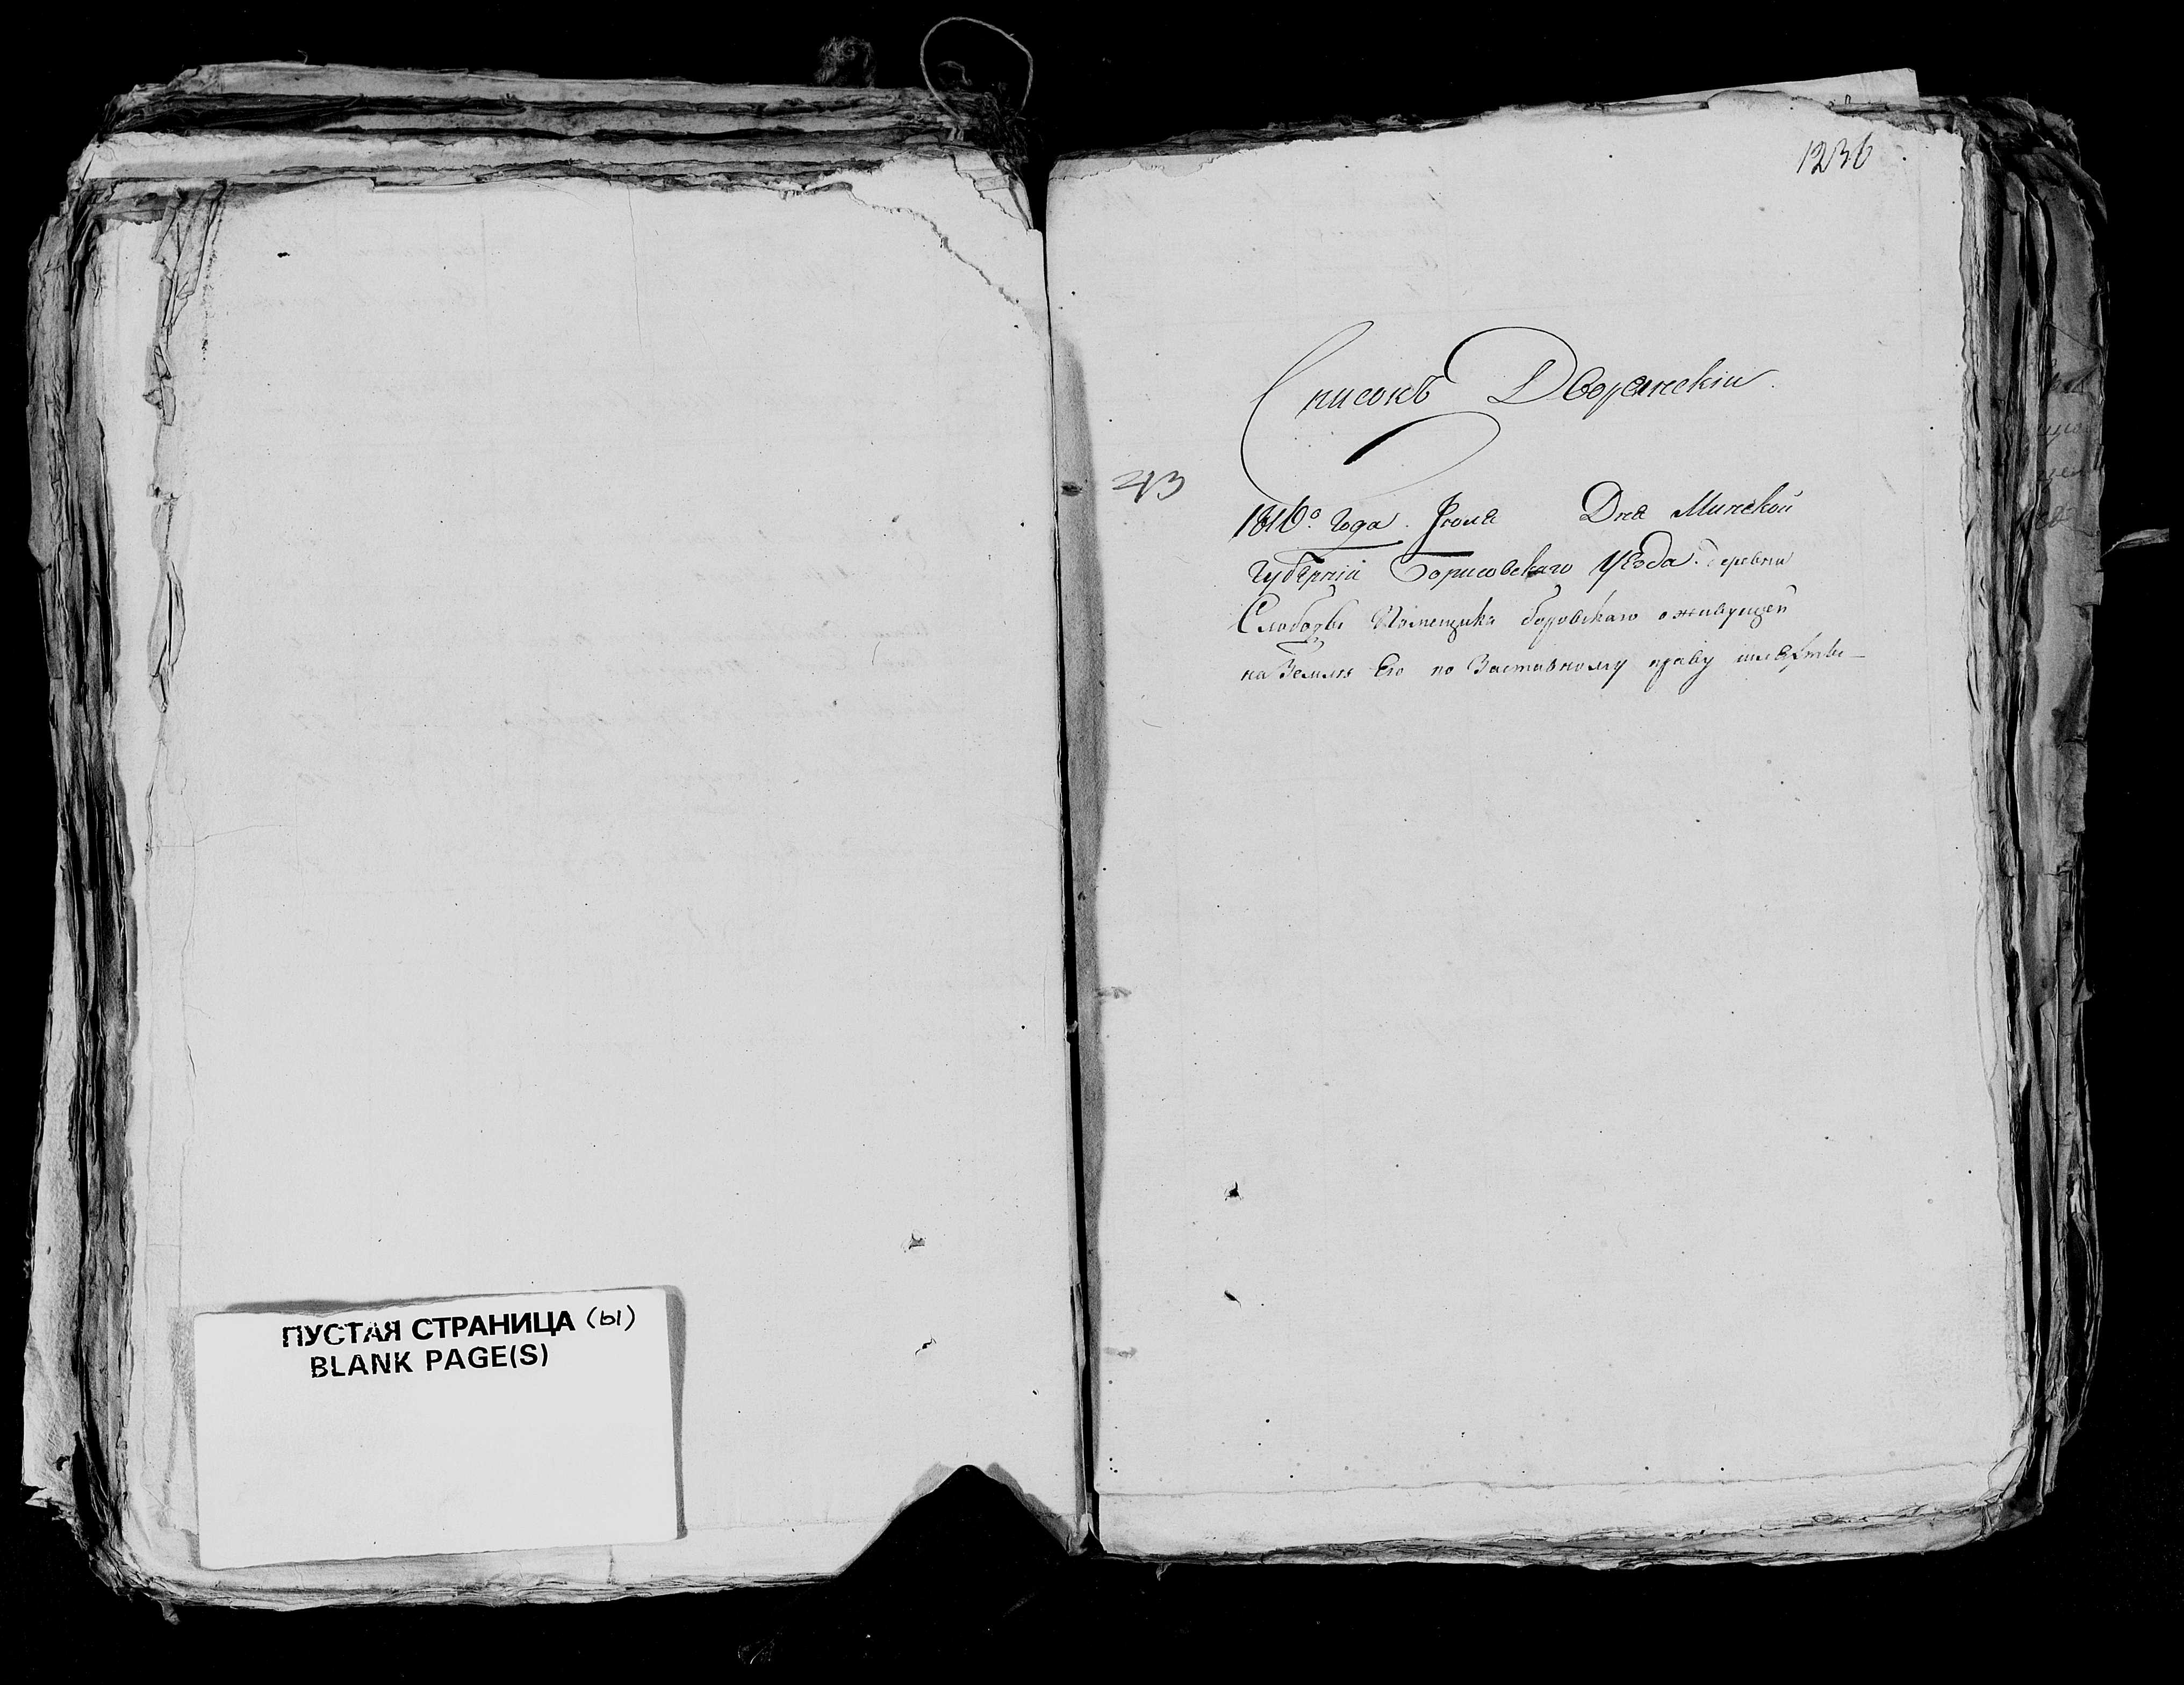 ПУСТАЯ СТРАНИЦА (ы)
BLANK PAGE(S)
1236
Списокъ Дворянскій
43
1816го Года Июля Дня Минской
Губерніи Борисовскаго уезда деревни
Слободы Помещика боровскаго о живущей
на Земли Его по Заставному праву шляхты